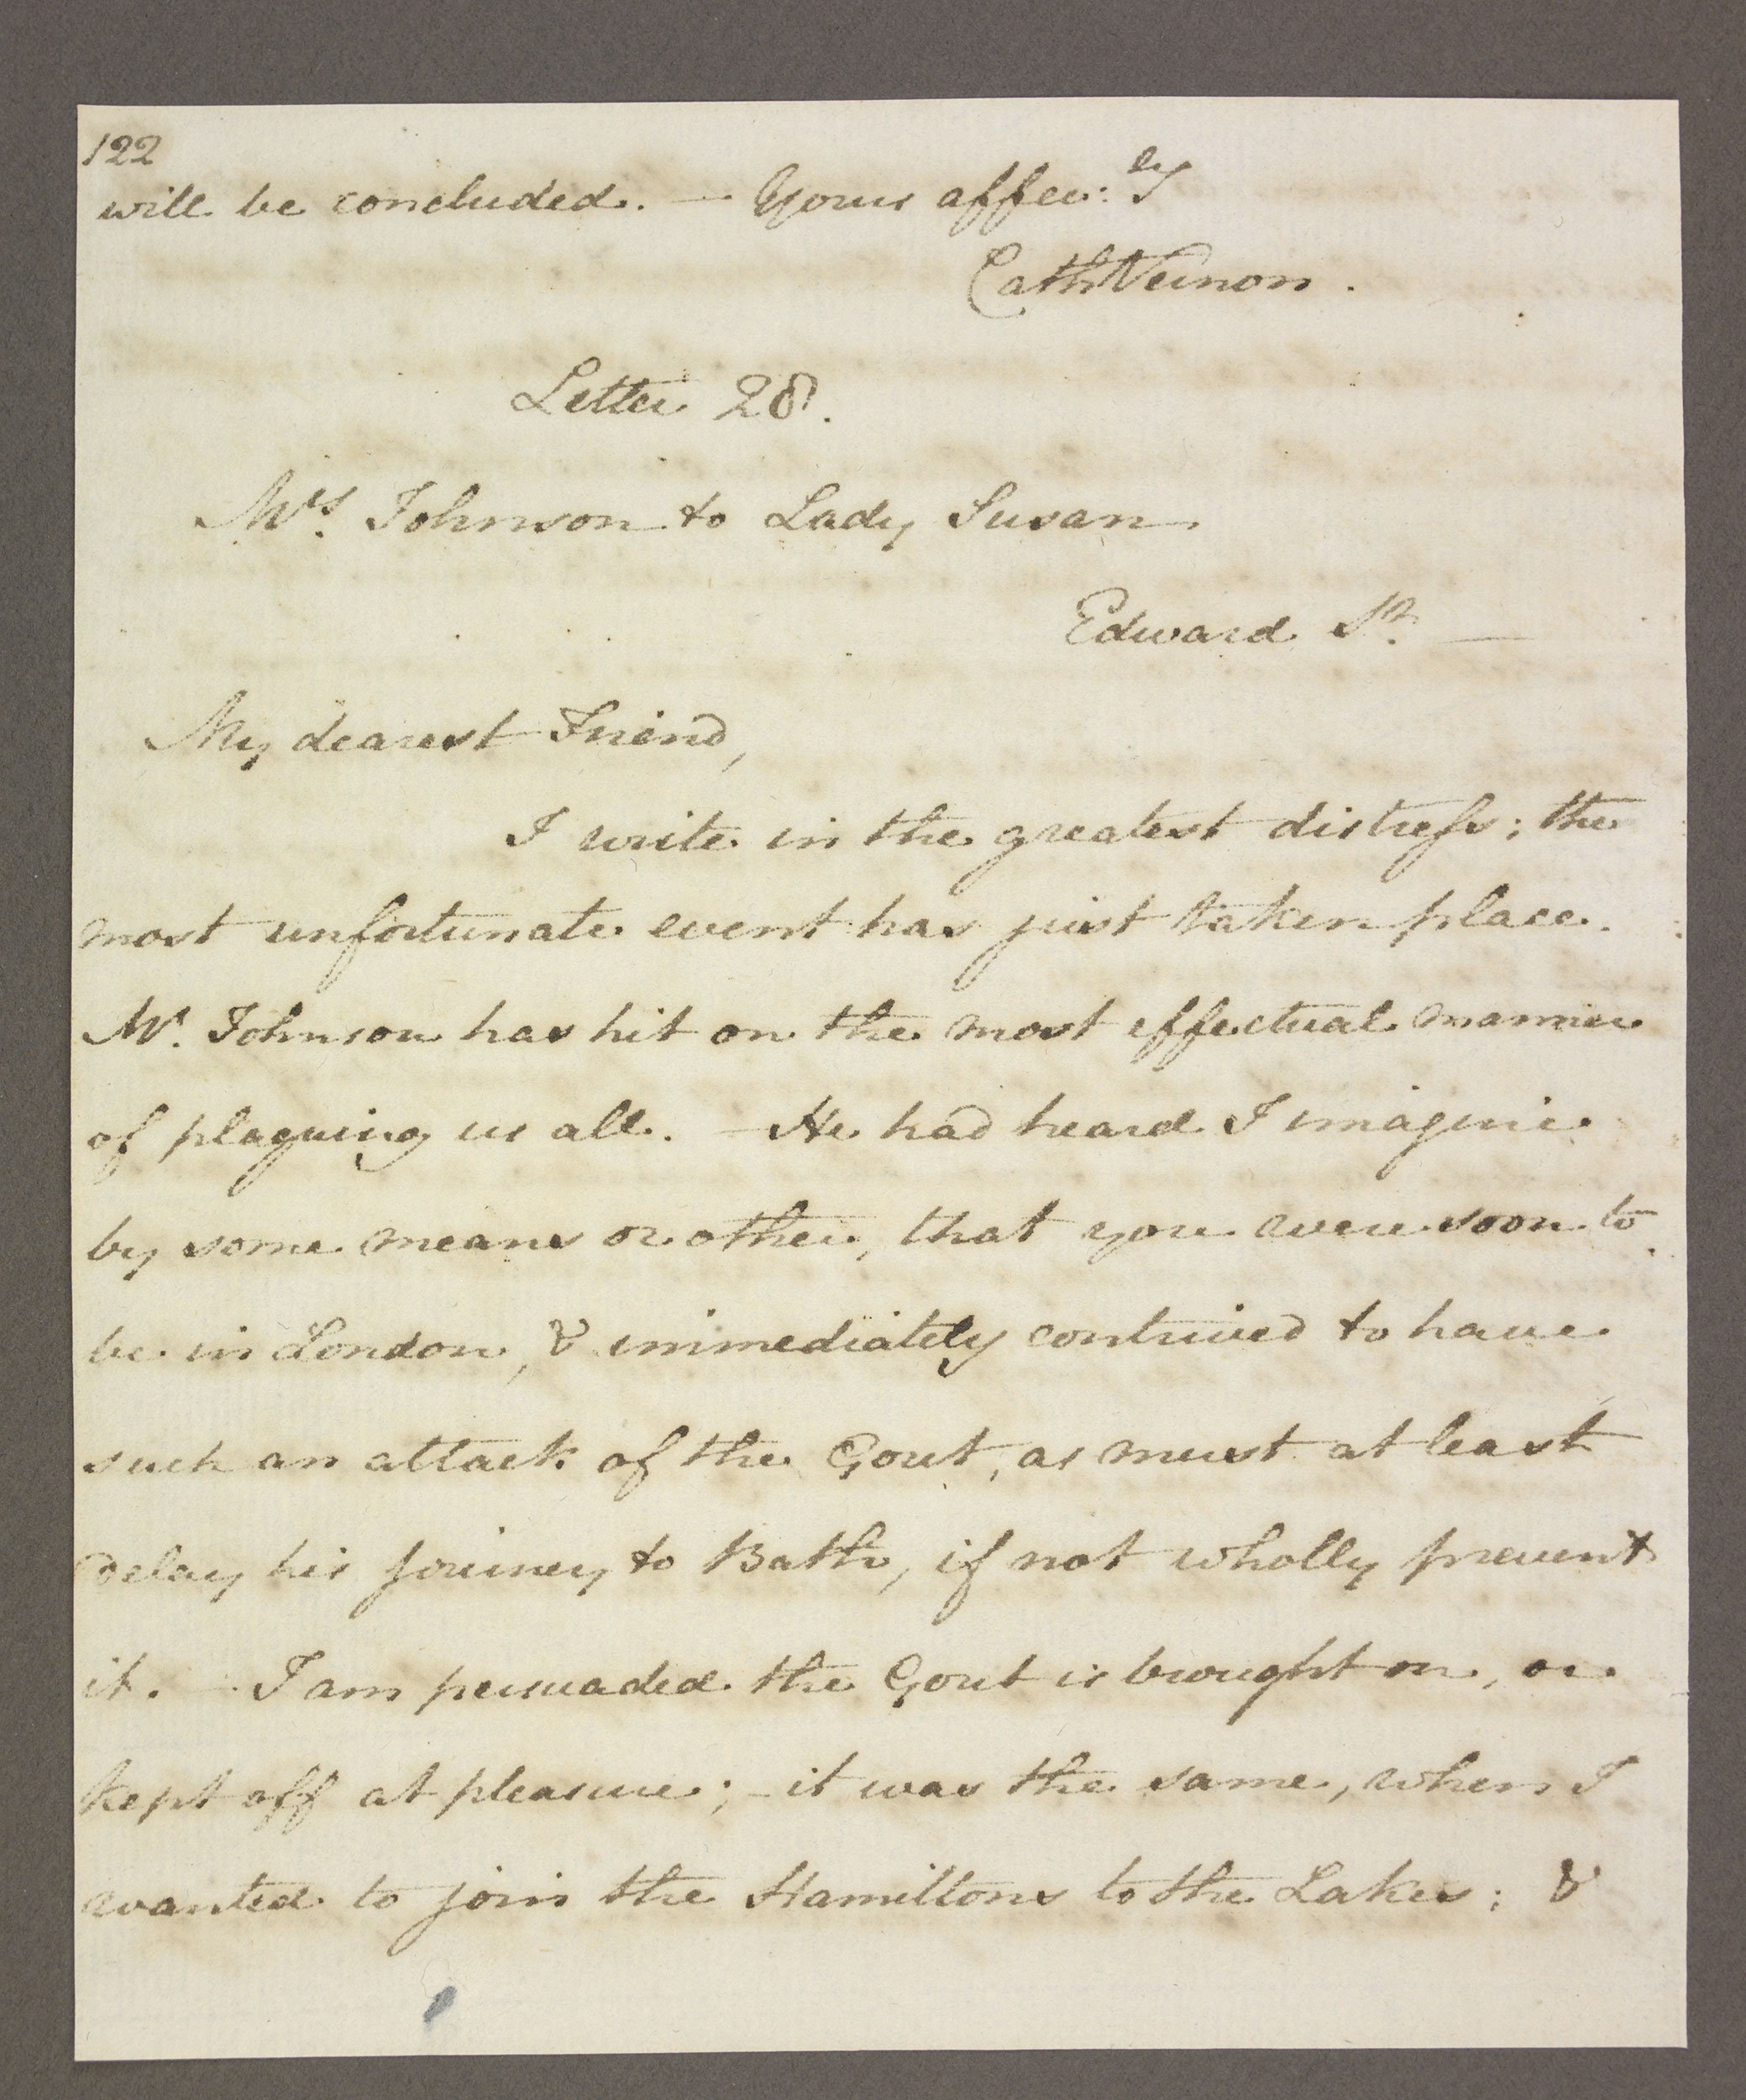 122
will be concluded. — Yours affec:ly
Cath Vernon.
Letter 28.
Mrs. Johnson to Lady Susan.
Edward St. —
My dearest Friend,
I write in the greatest distress; the
most unfortunate event has just taken place.
Mr. Johnson has hit on the most effectual manner
of plaguing us all. — He had heard I imagine
by some means or other, that you were soon to
be in London, & immediately contrived to have
such an attack of the Gout, as must at least
delay his journey to Bath, if not wholly prevent
it. — I am persuaded the Gout is brought on, or
kept off at pleasure; — it was the same, when I
wanted to join the Hamiltons to the Lakes; &